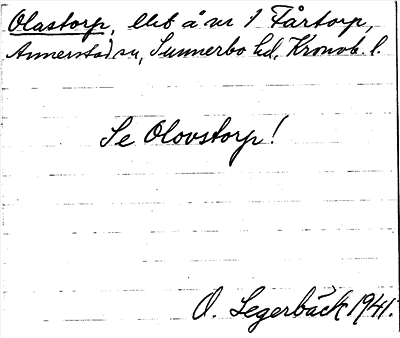 Olastorp, lht å nr 1 Fårtorp,
Annerstad sn, Sunnerbo hd, Kronob. l.
Se Olovstorp!
O. Segerbäck 1941.